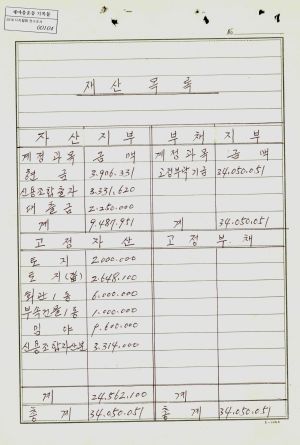 새마을운동 기록물
00104
재산목록
자산지부 부채지부
계정과목 금액 계정과목 금액
현금 3.906.331 고정부락기금 34.050.051
신용조합출자 3.331.620
대출금 2.250.000
계 9.487.951 계 34.050.051
고정자산 고정부채
토지 2.000.000
토지(답) 2.648.100
회관1동 6.000.000
부속건물1동 1.000.000
임야 9.600.000
신용조합자산분 3.314.000
계 24.562.100 계
총계 34.050.051 총계 34.050.051